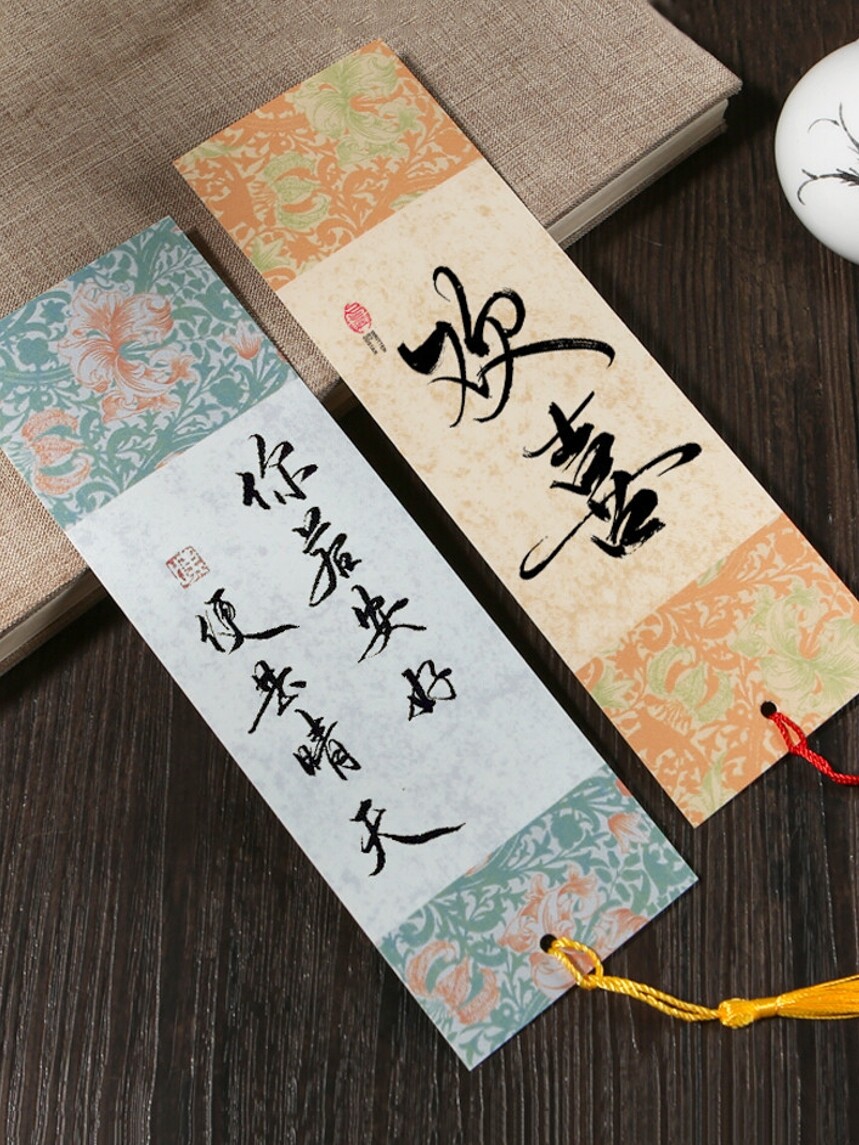 你若安好
便是晴天
欢喜